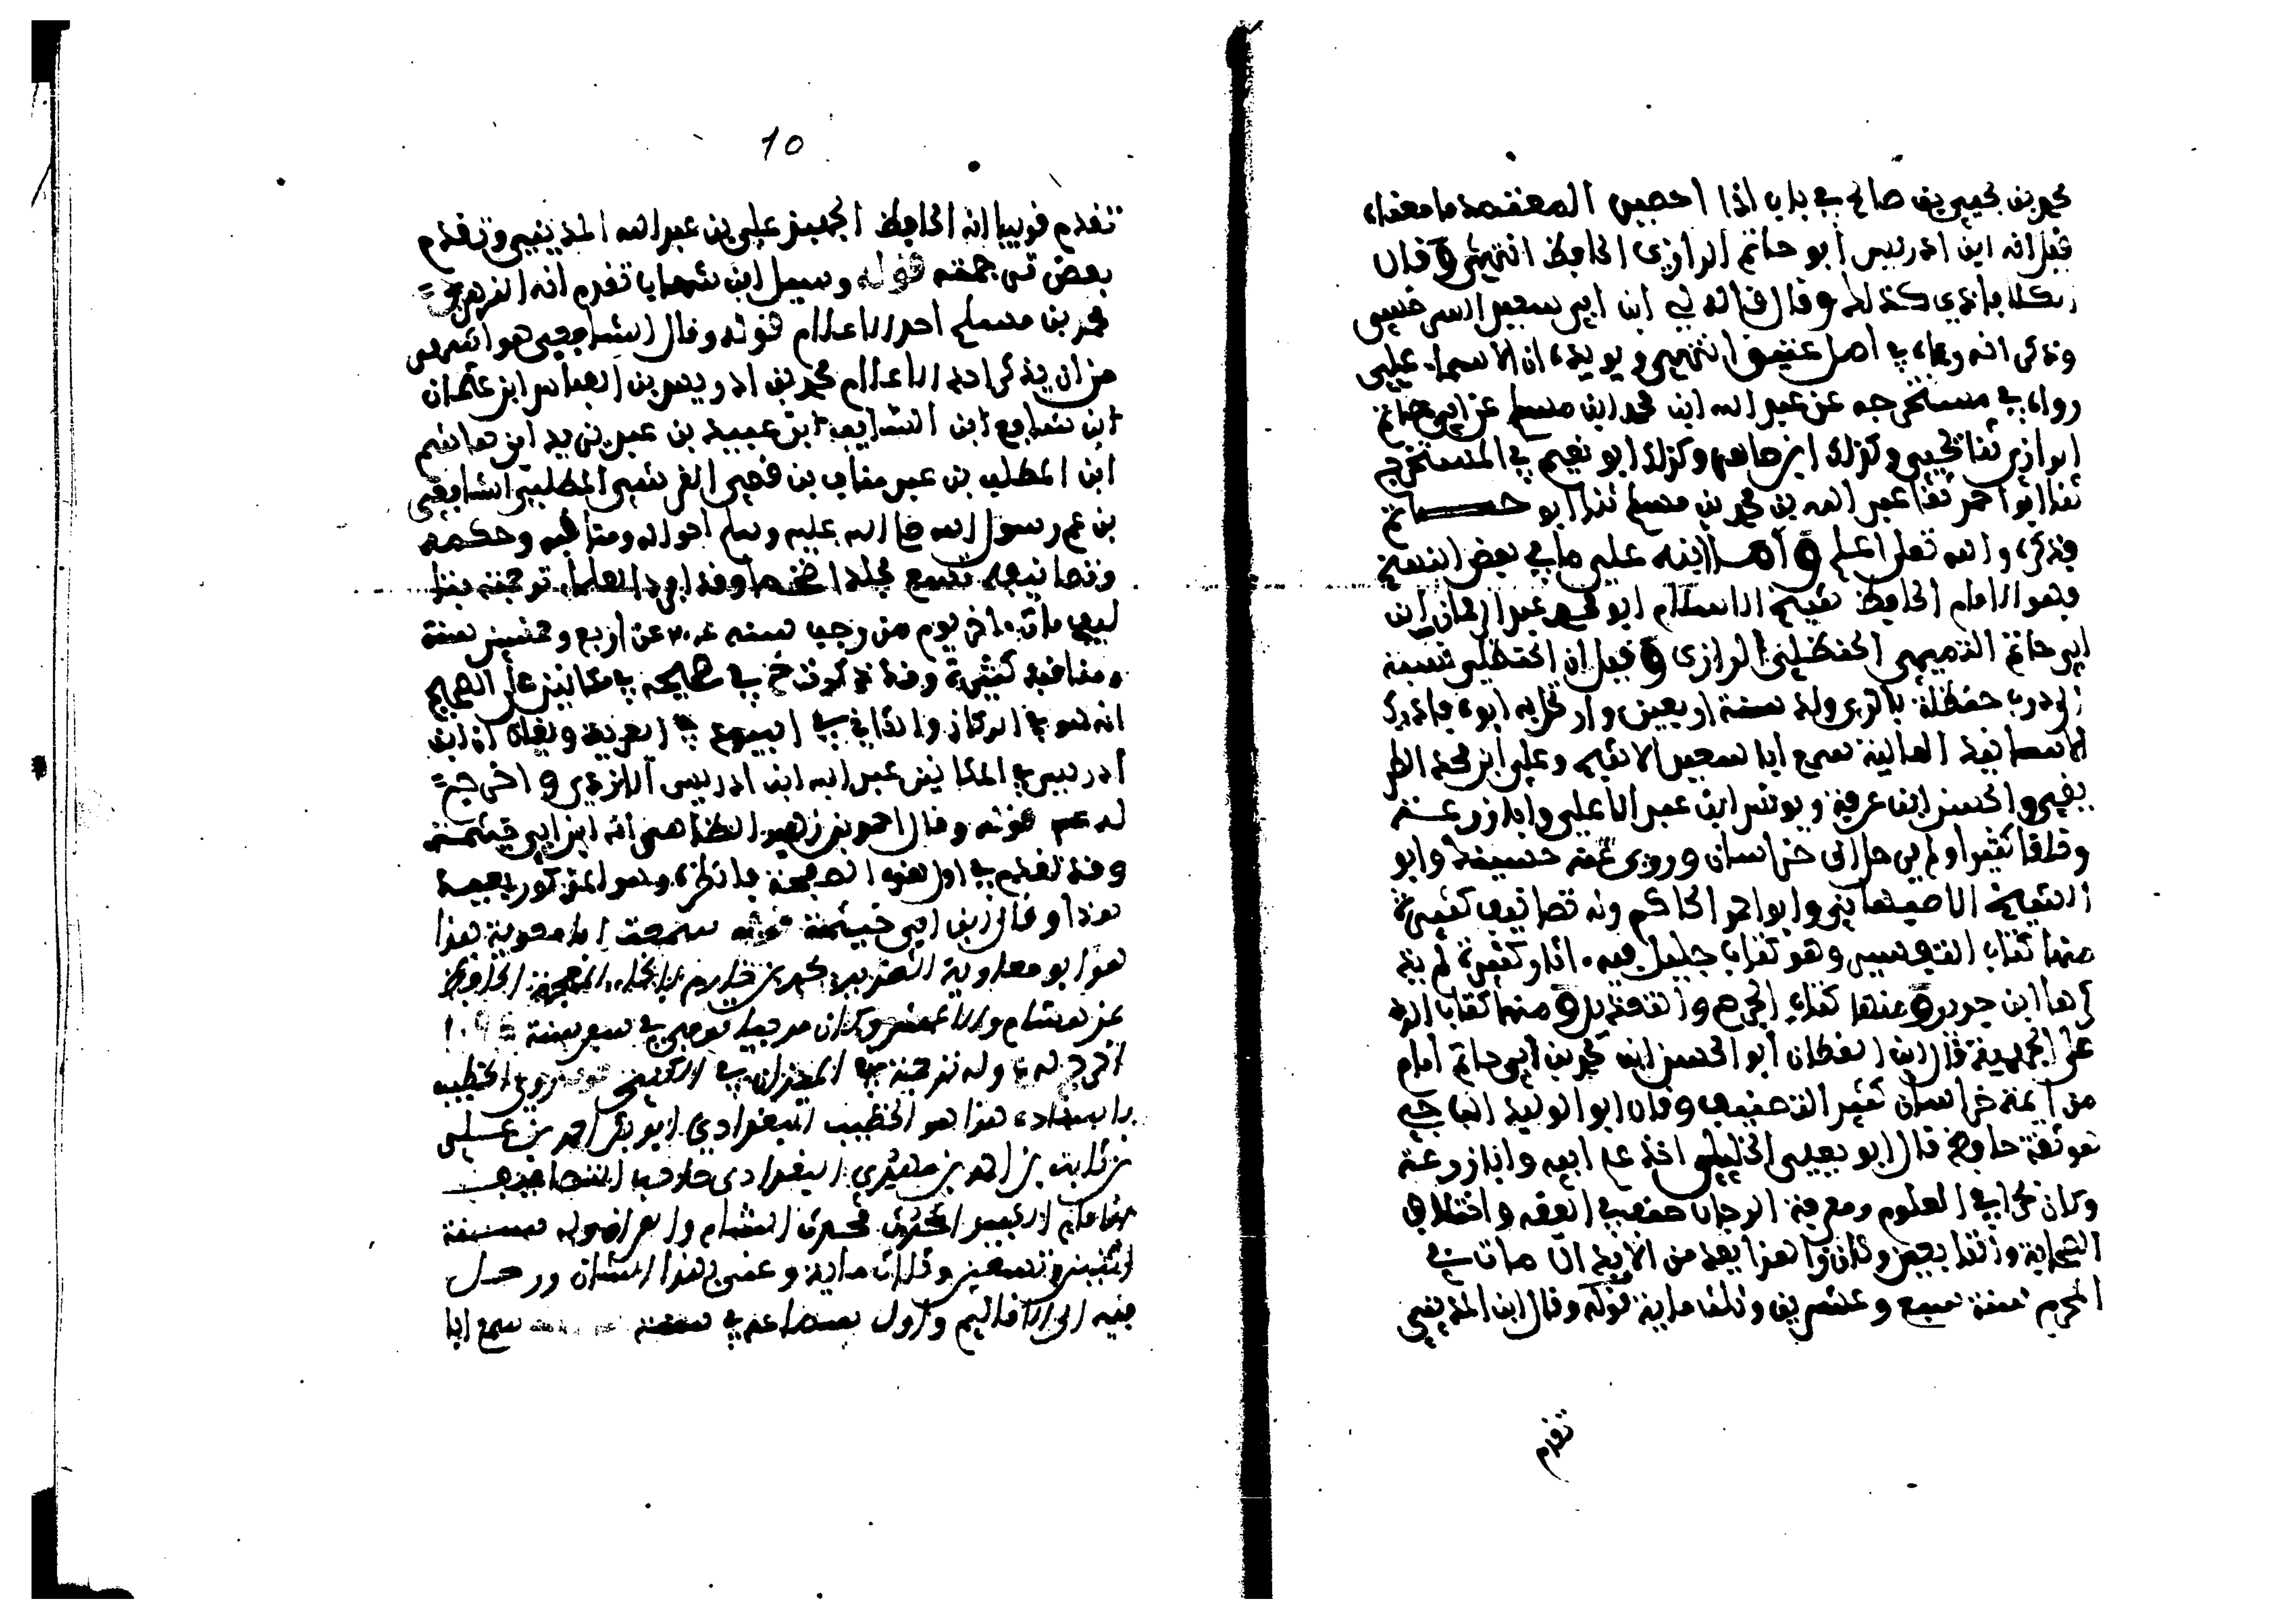 محمد بن يحيى بن صالح في باب اذا احصر المعتمر ما معناه
قيل انه ابن ادريس أبو حاتم الرازي الحافظ انتهى وقال
الكلاباذي كذلك وقال قاله لي ابن ابي سعيد السرخسي
وذكر انه رءاه في اصل عتيق انتهى ويويده ان الاسماعيلي
رواه في مستخرجه عن عبد الله ابن محمد ابن مسلم عن ابي حاتم
الرازي ثنا يحيى وكذلك وكذلك ابو نعيم في المستخرج
ثنا ابو احمد ثنا عبد الله بن محمد بن مسلم ثنا ابو حاتم
فذكره والله تعلى اعلم واما ابنه على ما في بعض النسخ
وهو الامام الحافظ شيخ الاسلام ابو محمد عبد الرحمان ابن
ابي حاتم التميمي الحنظلي الرازي وقيل ان الحنظلي نسبة
الى درب حنظلة بالري ولد سنة اربعين وارتحل به ابوه فادرك
الاسانيد العالية سمع ابا سعيد الاشج وعلي ابن محمد الطر
يقي والحسن ابن عرفة ويونس ابن عبد الاعلى وابا زرعة
وخلقا كثيرا وروى عنه حسينك وابو
الشيخ الاصبهاني وابو احمد الحاكم وله تصانيف كثيرة
منها كتاب التفسير وهو كتاب جليل فيه اثار كثيرة لم يذ
كرها ابن جرير ومنها كتاب الجرح والتعديل ومنها كتاب الرد
على الجهمية قال ابن القطان أبو الحسن ابن محمد بن ابي حاتم امام
من ايمة خراسان كثير التصنيف وقال ابو الوليد الباجي
هو ثقة حافظ قال ابو يعلى الخليلي اخذ علم ابيه وابا زرعة
وكان بحرا في العلوم ومعرفة الرجال صنف في الفقه واختلاف
الصحابة والتابعين وكان زاهدا يعد من الابدال مات في
المحرم سنة سبع وعشرين وثلث ماية قوله وقال ابن المديني
تقدم
10
تقدم قريبا انه الحافظ الجهبذ علي بن عبد الله المديني وتقدم
بعض ترجمته قوله وسيل ابن شهاب تقدم انه الزهري
محمد بن مسلم احد الاعلام قوله وقال الشافعي هو اشهر
من ان يذكر احد الاعلام محمد بن ادريس بن العباس ابن عثمان
ابن شافع ابن السايب ابن عبيد بن عبد يزيد ابن هاشم
ابن المطلب بن عبد مناف بن قصي القرشي المطلبي الشافعي
بن عم رسول الله صلى الله عليه وسلم احواله ومناقبه وحكمه
وتصانيفه تسع مجلدا ضخما وقد افرد العلماء ترجمته بتئا
ليف مات ءاخر يوم من رجب سنة ٢٠٤ عن اربع وخمسين سنة
ومناقبه كثيرة وقد ذكره خ في صحيحه في مكانين على الصحيح
انه هو في الركاز والثاني في البيوع في العرية ويقال ان ابن
ادريس في المكانين عبد الله ابن ادريس الاودي واخرج
له عم قوله وقال احمد بن زهير الظاهر انه ابن ابي خيثمة
وقد تقدم في اول هذه الصفحة فانظره وهو المذكور بعيد
هذا وقال ابن ابي خيثمة قوله سمعت ابا معوية هذا
هو ابو معاوية الضرير محمد بن خازم بالخاء المعجمة الحافظ
عن هشام والاعمش وكان مرجيا توفي في سنة
اخرج له ع وله ترجمة في الميزان في الكنى قوله وروى الخطيب
باسناده هذا هو الخطيب البغدادي ابو بكر احمد بن علي
بن ثابت بن احمد بن مهدي البغدادي صاحب التصانيف
الامام الكبير محدث الشام والعراق ولد سنة
اثنين وتسعين وثلاث ماية وعني بهذا الشان ورحل
فيه الى الاقاليم واول سماعه في سنة سمع ابا